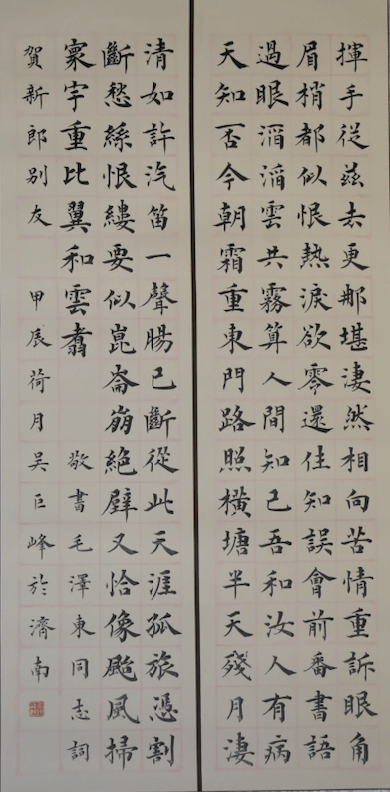 揮手從茲去更那堪淒然相向苦情重訴眼角
眉梢都似恨熱淚欲零還住知誤會前番書語
過眼滔滔雲共霧算人間知己吾和汝人有病
天知否今朝霜重東門路照橫塘半天殘月淒
清如許汽笛一聲腸已斷從此天涯孤旅憑割
斷愁絲恨縷要似崑崙崩絕壁又恰像颱風掃
寰宇重比翼和雲翥 敬書毛澤東同志詞
賀新郎別友 甲辰荷月吳巨峰於濟南